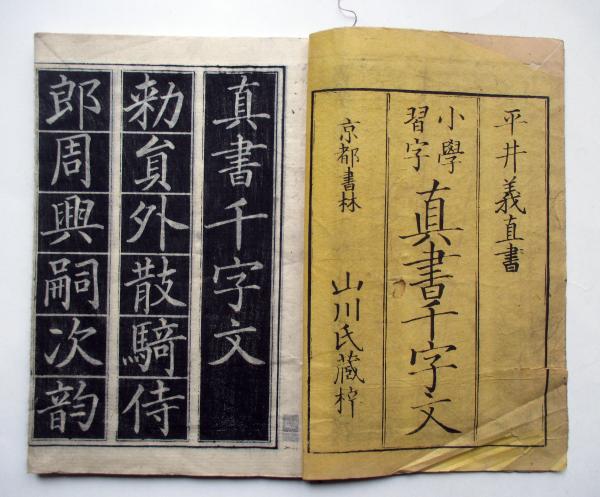 平井義直書
小學
習字
真書千字文
京都書林
山川氏藏梓
真書千字文
勅員外散騎侍
郎周興嗣次韵